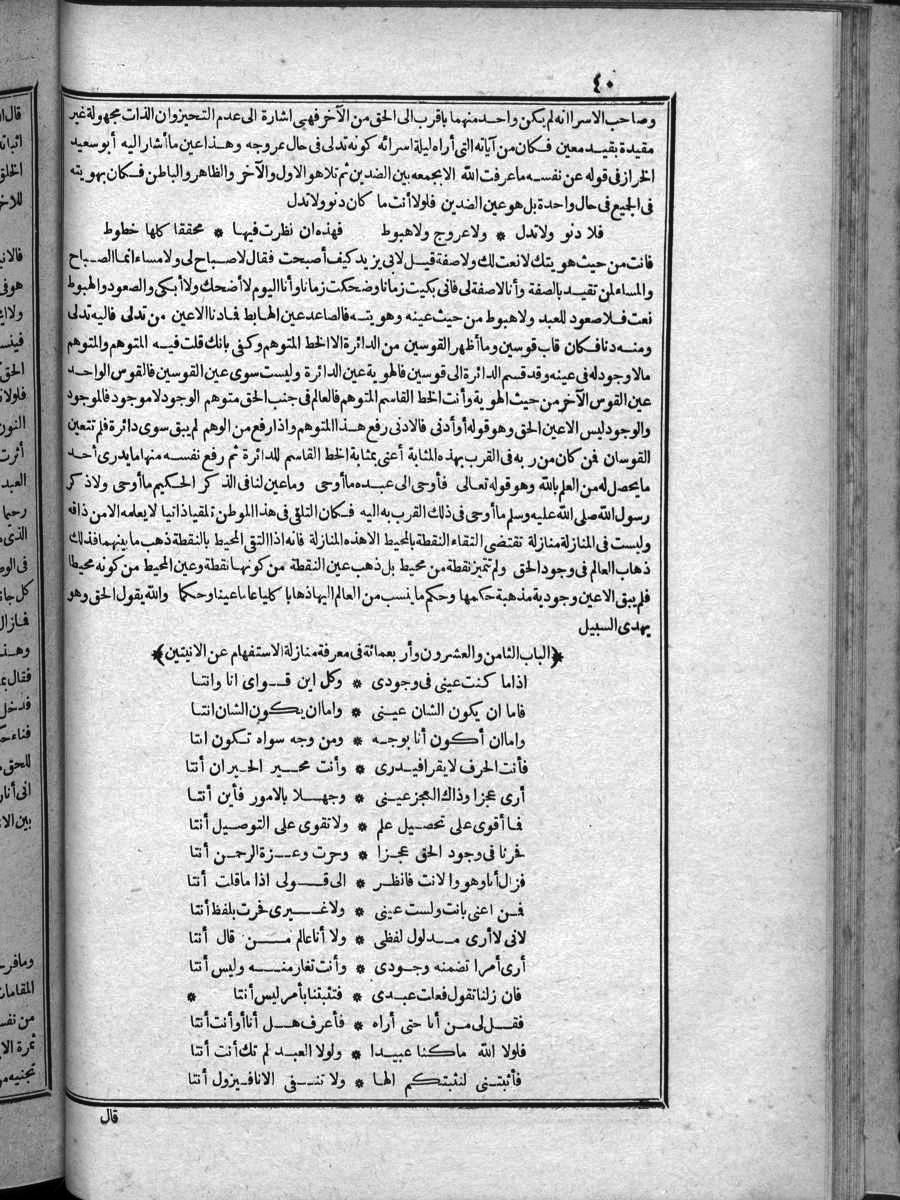 ٤٠
وصاحب الاسرا انه لم يكن واحد منهما باقرب الى الحق من الآخر فهى اشارة الى عدم التحيز وان الذات مجهولة غير
مقيدة بقيد معين فكان من آياته التى أراه ليلة اسرائه كونه تدلى فى حال عروجه وهذا عين ما أشار اليه أبو سعيد
الخراز فى قوله عن نفسه ما عرفت الله الا بجمعه بين الضدين ثم تلا هو الاول والآخر والظاهر والباطن فكان بهويته
فى الجميع فى حال واحدة بل هو عين الضدين فلولا أنت ما كان دنو ولا تدل
فلا دنو ولا تدل * ولا عروج ولا هبوط فهذه ان نظرت فيها * محققا كلها خطوط
فانت من حيث هويتك لا نعت لك ولا صفة قيل لابى يزيد كيف أصبحت فقال لا صباح لى ولا مساء انما الصباح
والمساء لمن تقيد بالصفة وأنا لا صفة لى فانى بكيت زمانا وضحكت زمانا وأنا اليوم لا أضحك ولا أبكى والصعود والهبوط
نعت فلا صعود للعبد ولا هبوط من حيث عينه وهويته فالصاعد عين الهابط فما دنا الا عين من تدلى فاليه تدلى
ومنه دنا فكان قاب قوسين وما أظهر القوسين من الدائرة الا الخط المتوهم وكفى بانك قلت فيه المتوهم والمتوهم
ما لا وجود له فى عينه وقد قسم الدائرة الى قوسين فالهوية عين الدائرة وليست سوى عين القوسين فالقوس الواحد
عين القوس الآخر من حيث الهوية وأنت الخط القاسم المتوهم فالعالم فى جنب الحق متوهم الوجود لا موجود فالموجود
والوجود ليس الا عين الحق وهو قوله أو أدنى فالادنى رفع هذا المتوهم واذا رفع من الوهم لم يبق سوى دائرة فلم تتعين
القوسان فمن كان من ربه فى القرب بهذه المثابة أعنى بمثابة الخط القاسم للدائرة ثم رفع نفسه منها ما يدرى أحد
ما يحصل له من العلم بالله وهو قوله تعالى فأوحى الى عبده ما أوحى وما عين لنا فى الذكر الحكيم ما أوحى ولا ذكر
رسول الله صلى الله عليه وسلم ما أوحى فى ذلك القرب به اليه فكان التلقى فى هذا الموطن تلقيا ذاتيا لا يعلمه الا من ذاقه
وليست فى المنازلة منازلة تقتضى التقاء النقطة بالمحيط الا هذه المنازلة فانه اذا التقى المحيط بالنقطة ذهب ما بينهما فذلك
ذهاب العالم فى وجود الحق ولم تتميز نقطة من محيط بل ذهب عين النقطة من كونها نقطة وعين المحيط من كونه محيطا
فلم يبق الا عين وجودية مذهبة حكمها وحكم ما ينسب من العالم اليها ذهابا كليا عاما عينا وحكما والله يقول الحق وهو
يهدى السبيل
﴿الباب الثامن والعشرون وأربعمائة فى معرفة منازلة الاستفهام عن الانيتين﴾
اذا ما كنت عينى فى وجودى * وكل اين قواى انا وانتا
فاما ان يكون الشان عينى * واما ان يكون الشان انتا
واما ان أكون أنا بوجه * ومن وجه سواه تكون انتا
فأنت الحرف لا يقرا فيدرى * وأنت محير الحيران أنتا
أرى عجزا وذاك العجز عينى * وجهلا بالامور فأين أنتا
فما أقوى على تحصيل علم * ولا تقوى على التوصيل أنتا
فحرنا فى وجود الحق عجزا * وحرت وعزة الرحمن أنتا
فزال أنا وهو والانت فانظر * الى قولى اذا ما قلت أنتا
فمن اعنى بانت ولست عينى * ولا غيرى فحرت بلفظ أنتا
لانى لا أرى مدلول لفظى * ولا أنا عالم من قال أنتا
أرى أمرا تضمنه وجودى * وأنت تغار منه وليس أنتا
فان زلنا تقول فعلت عبدى * فتثبتنا بأمر ليس أنتا *
فقل لى من أنا حتى أراه * فأعرف هل أنا أو أنت أنتا
فلولا الله ما كنا عبيدا * ولولا العبد لم تك أنت أنتا
فأثبتنى لنثبتكم الها * ولا تنفى الانا فيزول أنتا
قال